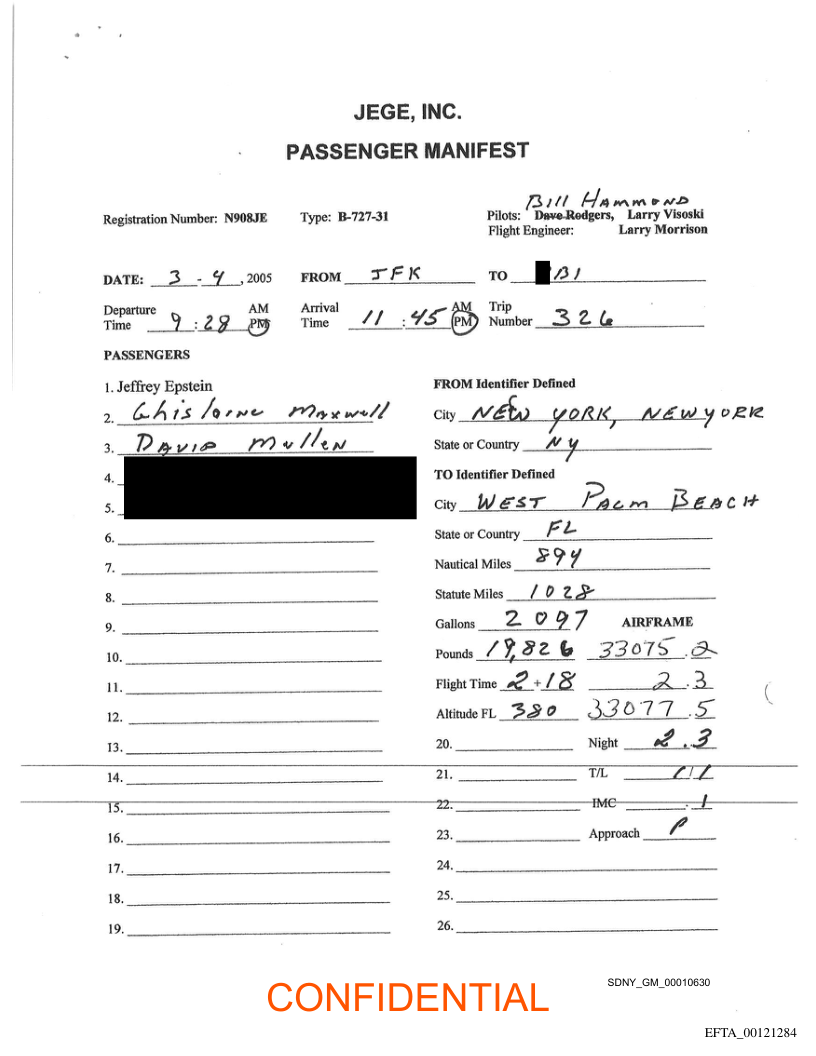 JEGE, INC.
PASSENGER MANIFEST
Bill Hammond
Registration Number: N908JE Type: B-727-31 Pilots: Dave Rodgers, Larry Visoski
Flight Engineer: Larry Morrison
DATE: 3 - 4, 2005 FROM JFK TO BI
Departure Time 9 : 28 AM PM Arrival Time 11 : 45 AM PM Trip Number 326
PASSENGERS
1. Jeffrey Epstein FROM Identifier Defined
2. Ghislaine Maxwell City NEW YORK, NEW YORK
3. David Mullen State or Country NY
4. TO Identifier Defined
5. City WEST PALM BEACH
6. State or Country FL
7. Nautical Miles 894
8. Statute Miles 1028
9. Gallons 2097 AIRFRAME
10. Pounds 19,826 33075.2
11. Flight Time 2+18 2.3
12. Altitude FL 380 33077.5
13. 20. Night 2.3
14. 21. T/L 1/1
15. 22. IMC .1
16. 23. Approach P
17. 24.
18. 25.
19. 26.
CONFIDENTIAL
SDNY_GM_00010630
EFTA_00121284